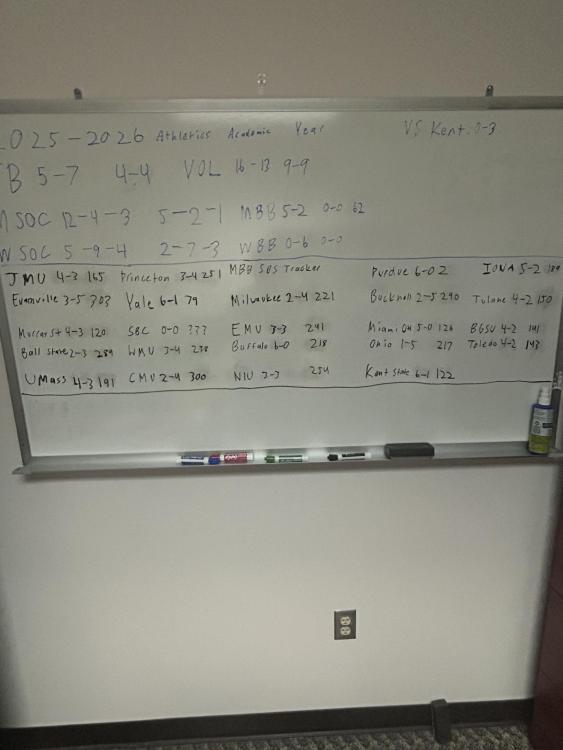 2025-2026 Athletics Academic Year VS Kent: 0-3
FB 5-7 4-4 VOL 16-13 9-9
M SOC 12-4-3 5-2-1 MBB 5-2 0-0 62
W SOC 5-9-4 2-7-3 WBB 0-6 0-0
JMU 4-3 165 Princeton 3-4 251 MBB SOS Tracker Purdue 6-0 2 IONA 5-2 189
Evansville 3-5 303 Yale 6-1 79 Milwaukee 2-4 221 Bucknell 2-5 290 Tulane 4-2 150
Murray St 4-3 120 SBC 0-0 ??? EMU 3-3 241 Miami OH 5-0 126 BGSU 4-2 141
Ball State 2-3 259 WMU 3-4 238 Buffalo 6-0 218 Ohio 1-5 217 Toledo 4-2 143
UMass 4-3 191 CMU 2-4 300 NIU 3-3 254 Kent State 6-1 122